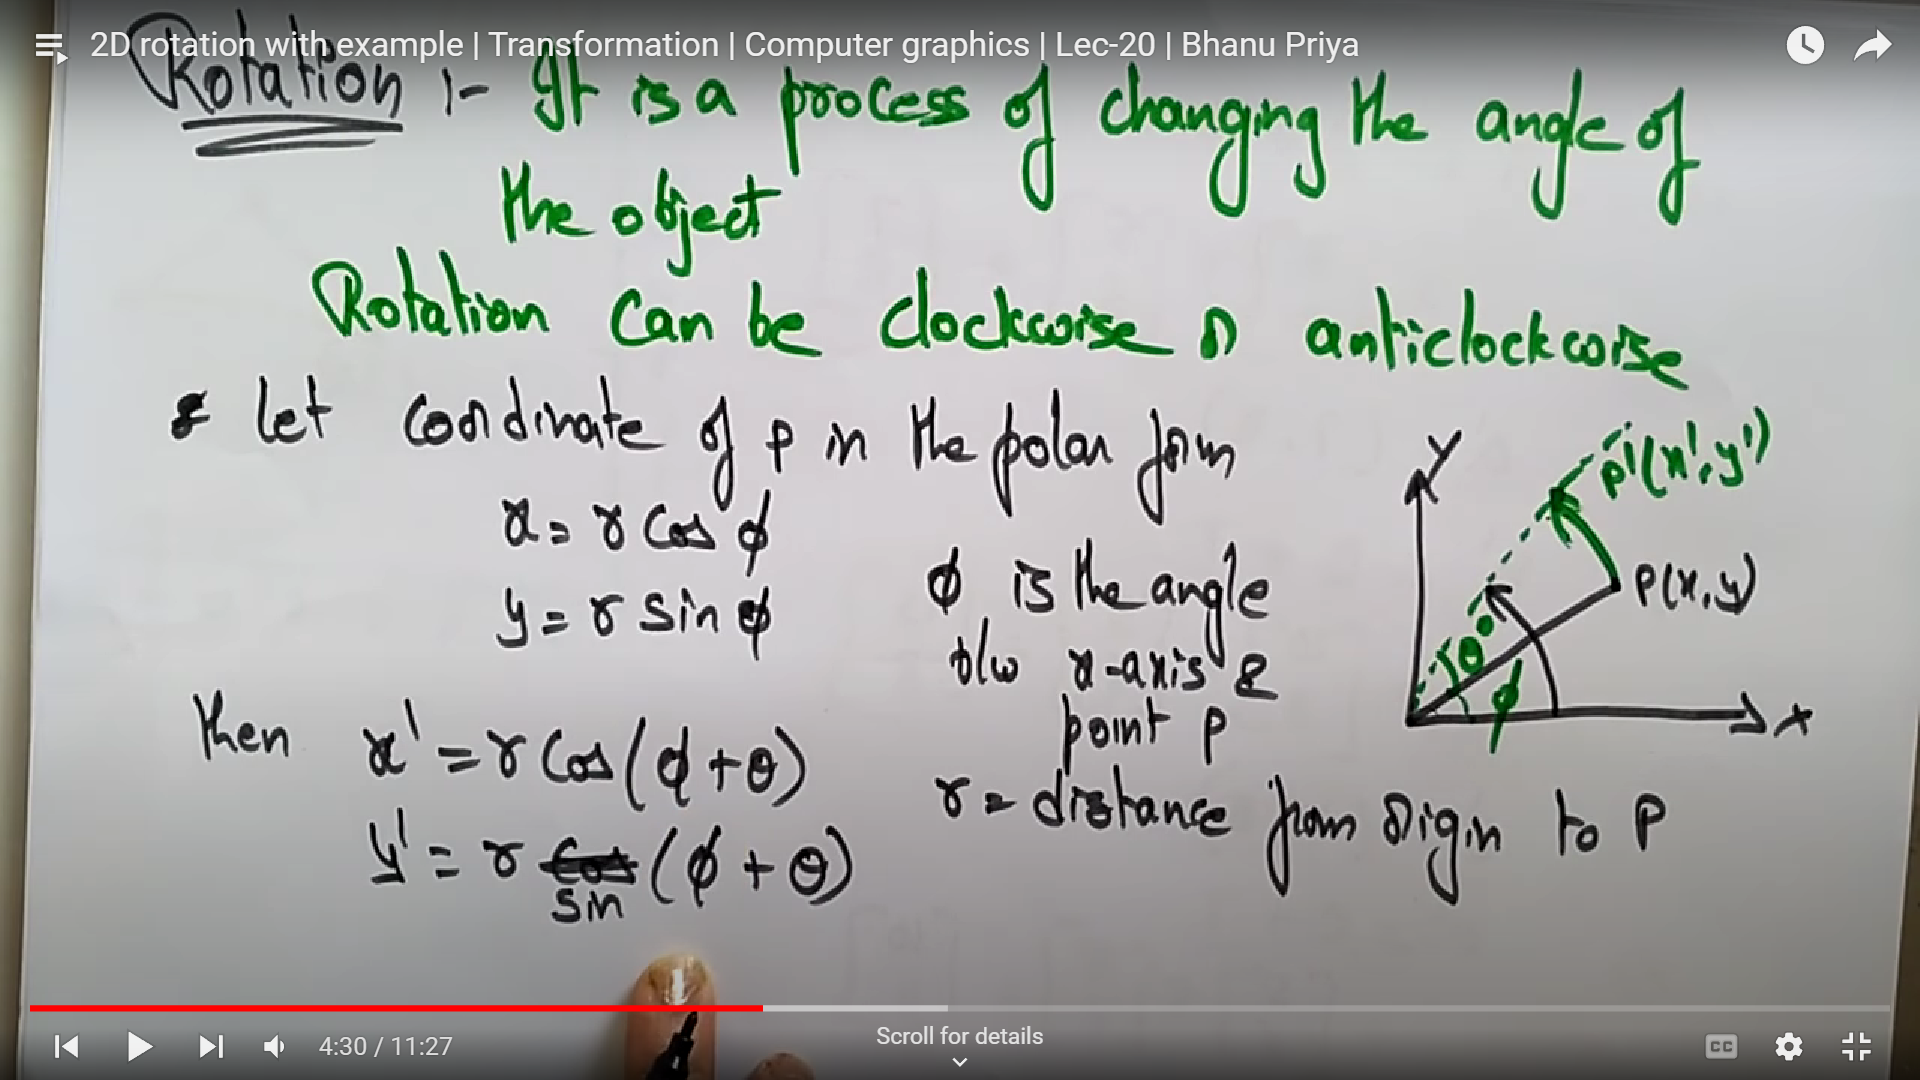 2D rotation with example | Transformation | Computer graphics | Lec-20 | Bhanu Priya
Rotation :- It is a process of changing the angle of
the object
Rotation can be clockwise or anticlockwise
let coordinate of P in the polar form
x = r cos ϕ
y = r sin ϕ
ϕ is the angle
b/w x-axis &
point P
r = distance from origin to P
then x' = r cos (ϕ + θ)
y' = r sin (ϕ + θ)
Y
P'(x', y')
P(x, y)
θ
ϕ
X
4:30 / 11:27
Scroll for details
CC